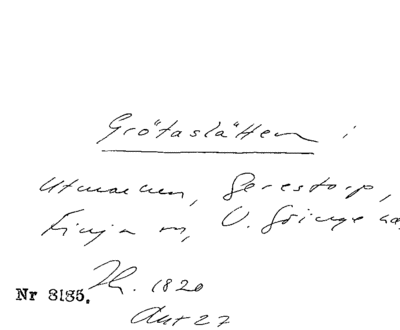 Grötaslätten i
Utmarken, Gerestorp,
Finja sn, V. Göinge hd
Nr 8185. Th. 1820
Akt 27